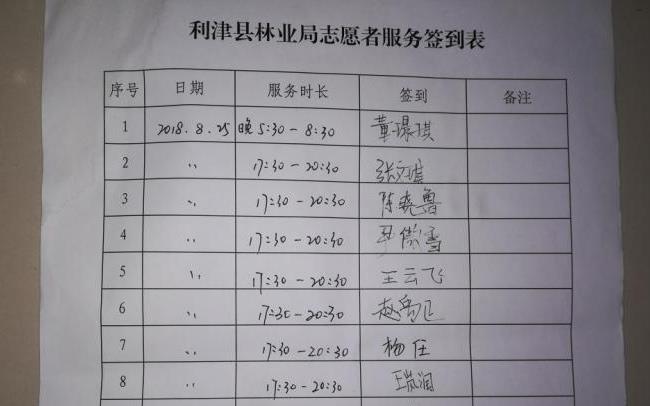 利津县林业局志愿者服务签到表
序号 日期 服务时长 签到 备注
1 2018.8.25 晚5:30-8:30 董璟琪
2 〃 17:30-20:30 张文琪
3 〃 17:30-20:30 陈晓鲁
4 〃 17:30-20:30
5 〃 17:30-20:30 王云飞
6 〃 17:30-20:30 赵
7 〃 17:30-20:30 杨任
8 〃 17:30-20:30 王润